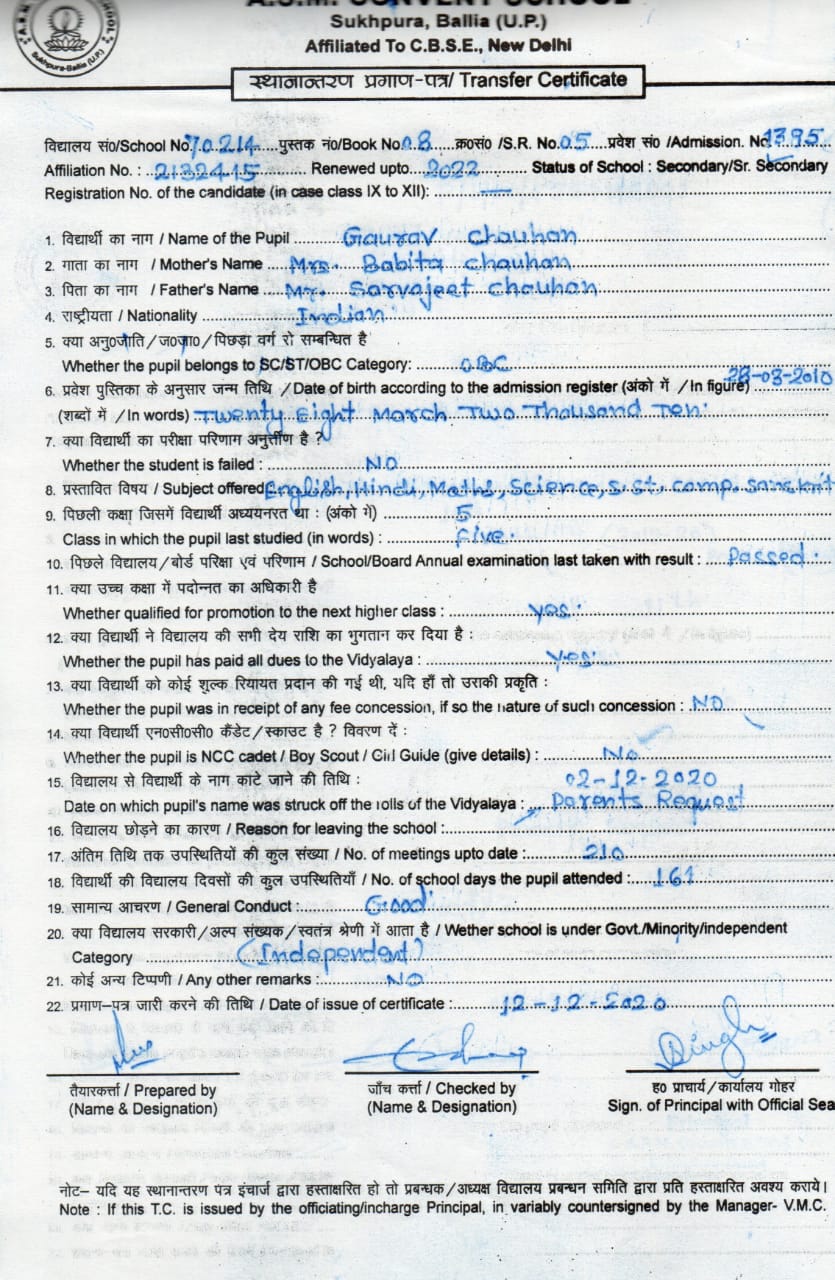 A.S.M. CONVENT SCHOOL
Sukhpura, Ballia (U.P.)
Sukhpura-Ballia (U.P.)
Affiliated To C.B.S.E., New Delhi
स्थानान्तरण प्रमाण-पत्र/ Transfer Certificate
विद्यालय सं०/School No. 70214 पुस्तक नं०/Book No. 08 क्र०सं० /S.R. No. 05 प्रवेश सं० /Admission. No. 1395
Affiliation No. : 2132415 Renewed upto 2022 Status of School : Secondary/Sr. Secondary
Registration No. of the candidate (in case class IX to XII): —
1. विद्यार्थी का नाग / Name of the Pupil Gaurav Chauhan
2. गाता का नाग / Mother's Name Mrs. Babita Chauhan
3. पिता का नाग / Father's Name Mr. Sarvajeet Chauhan
4. राष्ट्रीयता / Nationality Indian
5. क्या अनु०जाति/ज०जा०/पिछड़ा वर्ग रो सम्बन्धित है
Whether the pupil belongs to SC/ST/OBC Category: OBC
6. प्रवेश पुस्तिका के अनुसार जन्म तिथि / Date of birth according to the admission register (अंको गें / In figure) 28-03-2010
(शब्दों में / In words) Twenty Eight March Two Thousand Ten.
7. क्या विद्यार्थी का परीक्षा परिणाम अनुर्त्तीण है ?
Whether the student is failed : NO
8. प्रस्तावित विषय / Subject offered English, Hindi, Maths, Science, s.st. comp. sanskrit
9. पिछली कक्षा जिसमें विद्यार्थी अध्ययनरत था : (अंको गें) 5
Class in which the pupil last studied (in words) : Five.
10. पिछले विद्यालय/बोर्ड परिक्षा एवं परिणाम / School/Board Annual examination last taken with result : Passed.
11. क्या उच्च कक्षा में पदोन्नत का अधिकारी है
Whether qualified for promotion to the next higher class : yes.
12. क्या विद्यार्थी ने विद्यालय की सभी देय राशि का भुगतान कर दिया है :
Whether the pupil has paid all dues to the Vidyalaya : yes.
13. क्या विद्यार्थी को कोई शुल्क रियायत प्रदान की गई थी, यदि हाँ तो उराकी प्रकृति :
Whether the pupil was in receipt of any fee concession, if so the nature of such concession : NO
14. क्या विद्यार्थी एन०सी०सी० कैंडेट/स्काउट है ? विवरण दें :
Whether the pupil is NCC cadet / Boy Scout / Girl Guide (give details) : No
15. विद्यालय से विद्यार्थी के नाग काटे जाने की तिथि : 02-12-2020
Date on which pupil's name was struck off the rolls of the Vidyalaya : Parents Request
16. विद्यालय छोड़ने का कारण / Reason for leaving the school :
17. अंतिम तिथि तक उपस्थितियों की कुल संख्या / No. of meetings upto date : 210
18. विद्यार्थी की विद्यालय दिवसों की कुल उपस्थितियाँ / No. of school days the pupil attended : 161
19. सामान्य आचरण / General Conduct : Good
20. क्या विद्यालय सरकारी/अल्प संख्यक/स्वतंत्र श्रेणी में आता है / Wether school is under Govt./Minority/independent
Category (Independent)
21. कोई अन्य टिप्पणी / Any other remarks : NO
22. प्रगाण-पत्र जारी करने की तिथि / Date of issue of certificate : 12-12-2020
Singh
तैयारकर्त्ता / Prepared by जाँच कर्त्ता / Checked by ह० प्राचार्य/कार्यालय गोहर
(Name & Designation) (Name & Designation) Sign. of Principal with Official Sea
नोट- यदि यह स्थानान्तरण पत्र इंचार्ज द्वारा हस्ताक्षरित हो तो प्रबन्धक/अध्यक्ष विद्यालय प्रबन्धन समिति द्वारा प्रति हस्ताक्षरित अवश्य कराये।
Note : If this T.C. is issued by the officiating/incharge Principal, in variably countersigned by the Manager- V.M.C.